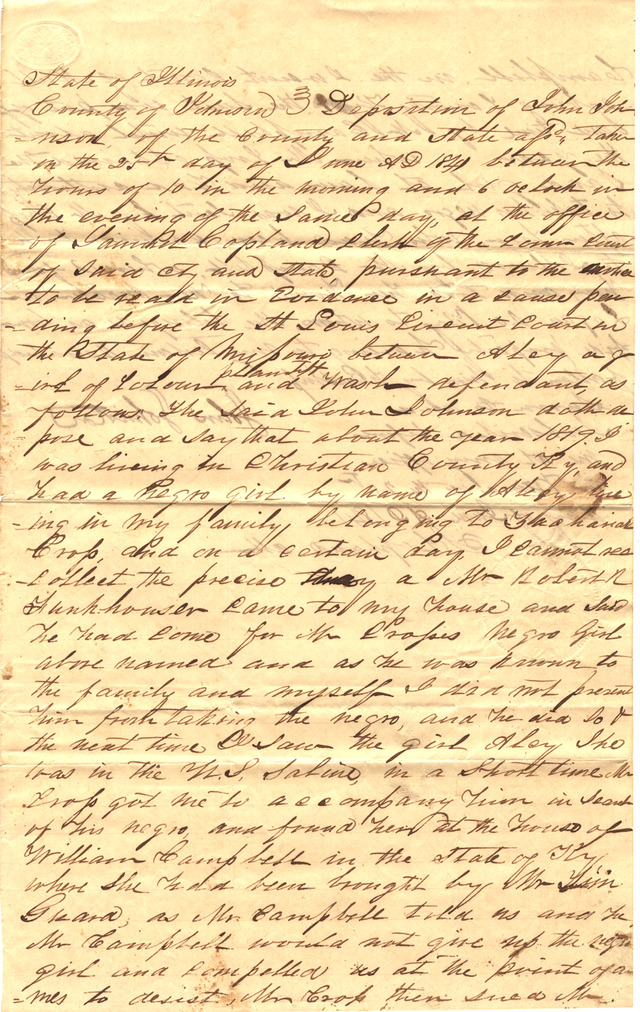 State of Illinois
County of Johnson } Deposition of John Joh-
=nson, of the County and State afsd, taken
on the 25th day of June AD 1841 between the
hours of 10 in the morning and 6 oclock in
the evening of the same day, at the office
of Samuel Copland Clerk of the Court
of said Cty and State, pursuant to the notice
to be read in Evidence in a cause pen
-ding before the St Louis Circuit Court in
the State of Missouri between Aley a g
-irl of Colour plaintiff and Wash defendant, as
follows. The said John Johnson doth de
pose and say that about the year 1819. I
was living in Christian County Ky, and
had a Negro girl by name of Aley live
-ing in my family, belonging to Zachariah
Crop, and on a certain day, I cannot rec
-collect the precise day a Mr Robert R
Funkhouser came to my house and said
he had come for Mr Crops's Negro Girl
above named and as he was known to
the family and myself I did not prevent
him from taking the negro, and he did so &
the next time I saw the girl Aley She
was in the U.S. Saline, in a short time Mr
Crop got me to accompany him in search
of his negro, and found her at the house of
William Campbell in the State of Ky
where she had been brought by Mr
Guard, as Mr Campbell told us and he
Mr Campbell would not give up the negro
girl and compelled us at the point of a
=rmes to desist, Mr Crop then sued Mr.